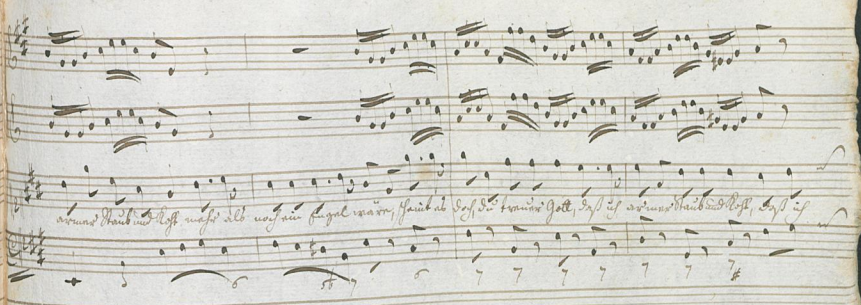 armer Staub und Koth mehr als noch ein Engel wäre, scheint es doch, du treuer Gott, daß ich armer Staub und Koth, daß ich
6 5 6 7 6 7 7 7 7 7 7 7